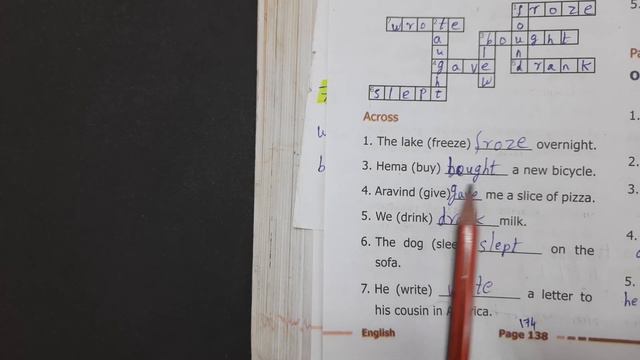 froze
wrote
bought
gave
drank
slept
Across
1. The lake (freeze) froze overnight.
3. Hema (buy) bought a new bicycle.
4. Aravind (give) gave me a slice of pizza.
5. We (drink) drank milk.
6. The dog slept on the
sofa.
7. He (write) a letter to
his cousin in
174
English Page 138